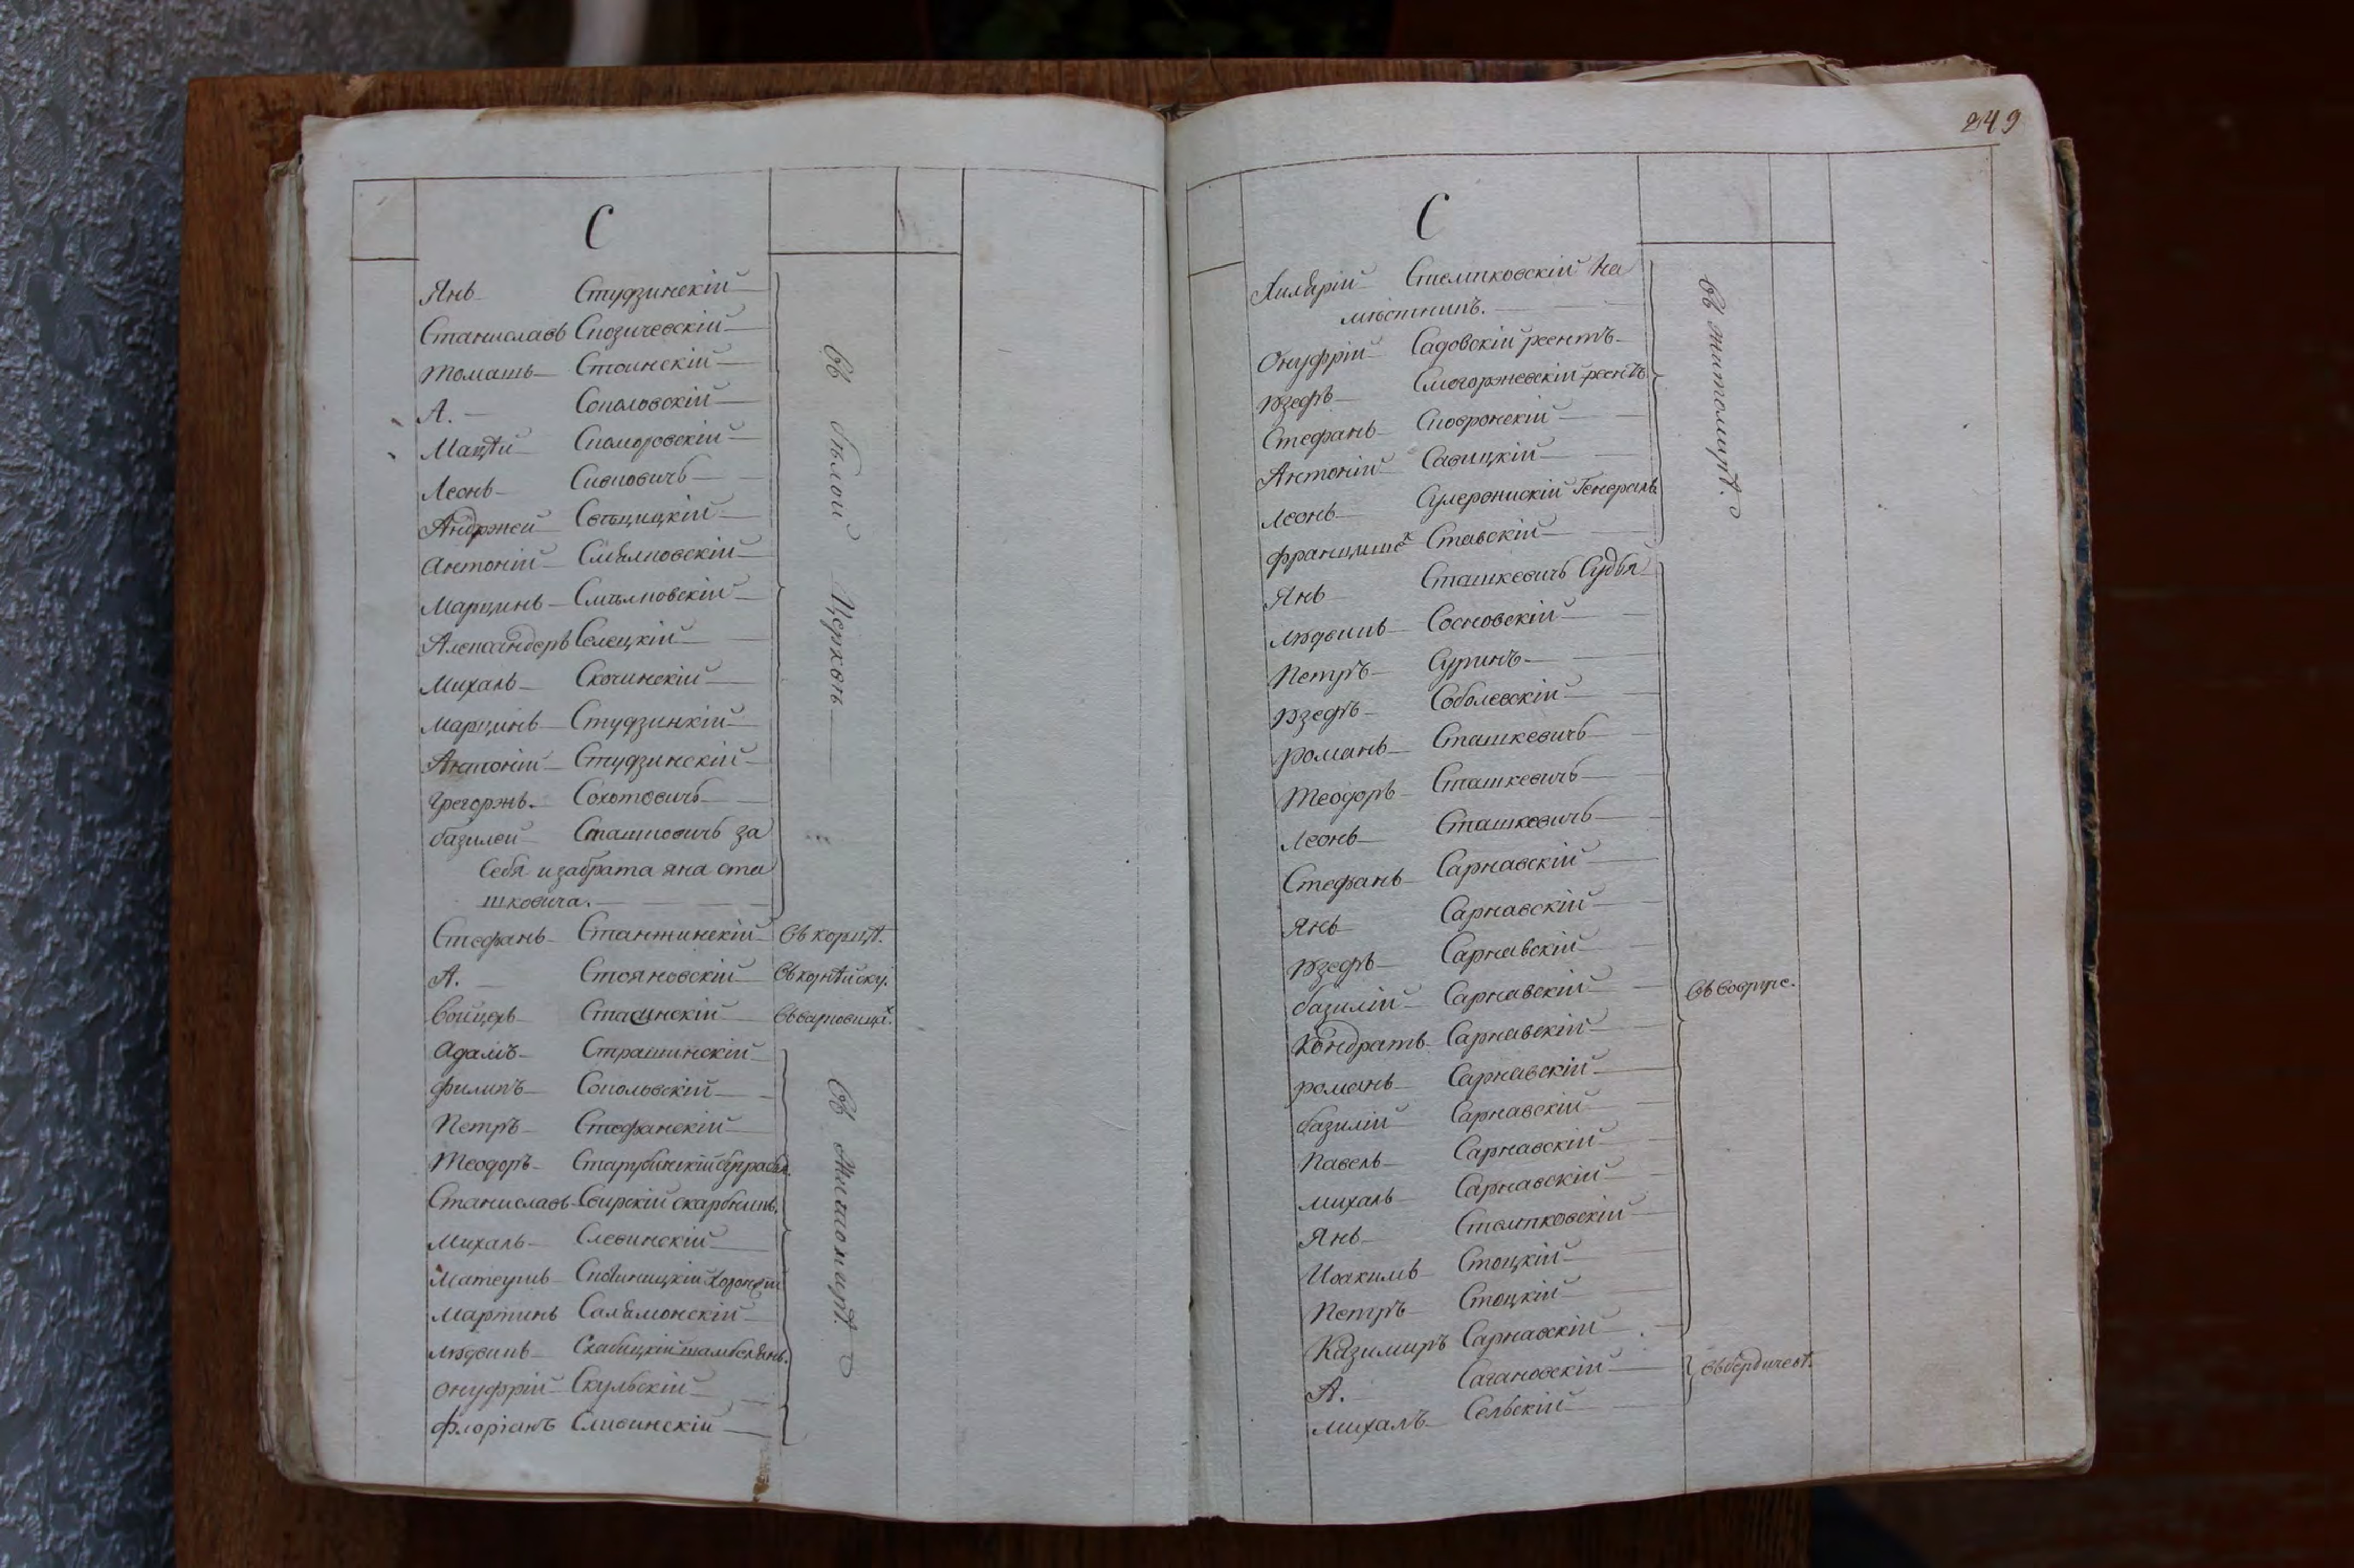 С
Янъ Студзинскій
Станиславъ Снозичевскій
Томашъ Стоинскій
А. Соколовскій
Мацѣй Скоморовскій
Леонъ Сивковичъ
Андржей Свѣцицкій
Антоній Смѣлковскій
Марцинъ Смѣлковскій
Александеръ Селецкій
Михаль Скочинскій
Марцинъ Студзинкій
Антоній Студзинскій
Грегоржъ Сохотовичъ
Базилей Сташковичъ за
Себя и за брата яна ста
шковича.
въ бѣлой Церкви
Стефанъ Станжинскій въ корцѣ.
А. Стояновскій
Войцехъ Стасинскій
Адамъ Страшинскій
Филипъ Сокольскій
Петръ Стефанскій
Теодоръ Старубинскій
Станиславъ Свирскій скарбникъ.
Михаль Слевинскій
Матеушъ Хоронжій
Мартинъ Саламонскій
Людвикъ Скабицкій шамбелянъ.
Онуфрій Скульскій
Флоріанъ Сливинскій
въ Житомирѣ.
249
С
Хиларій Стемпковскій На
мѣстникъ.
Онуфрій Садовскій реентъ
Юзефъ Смогоржевскій реентъ
Стефанъ Сковронскій
Антоній Савицкій
Леонъ Генералъ
Францишекъ Ставскій
въ житомирѣ.
Янъ Сташкевичъ Судья
Людвикъ Сосновскій
Петръ Суринъ
Юзефъ Соболевскій
Романъ Сташкевичъ
Теодоръ Сташкевичъ
Леонъ Сташкевичъ
Стефанъ Сарнавскій
Янъ Сарнавскій
Юзефъ Сарнавскій
Базилій Сарнавскій въ овручѣ.
Кондратъ Сарнавскій
Романъ Сарнавскій
Базилій Сарнавскій
Павелъ Сарнавскій
Михаль Сарнавскій
Янъ Стемпковскій
Иоакимъ Стоцкій
Петръ Стоцкій
Казимиръ Сарнавскій
А. Сагановскій въ бердичевѣ.
Михалъ Сельскій